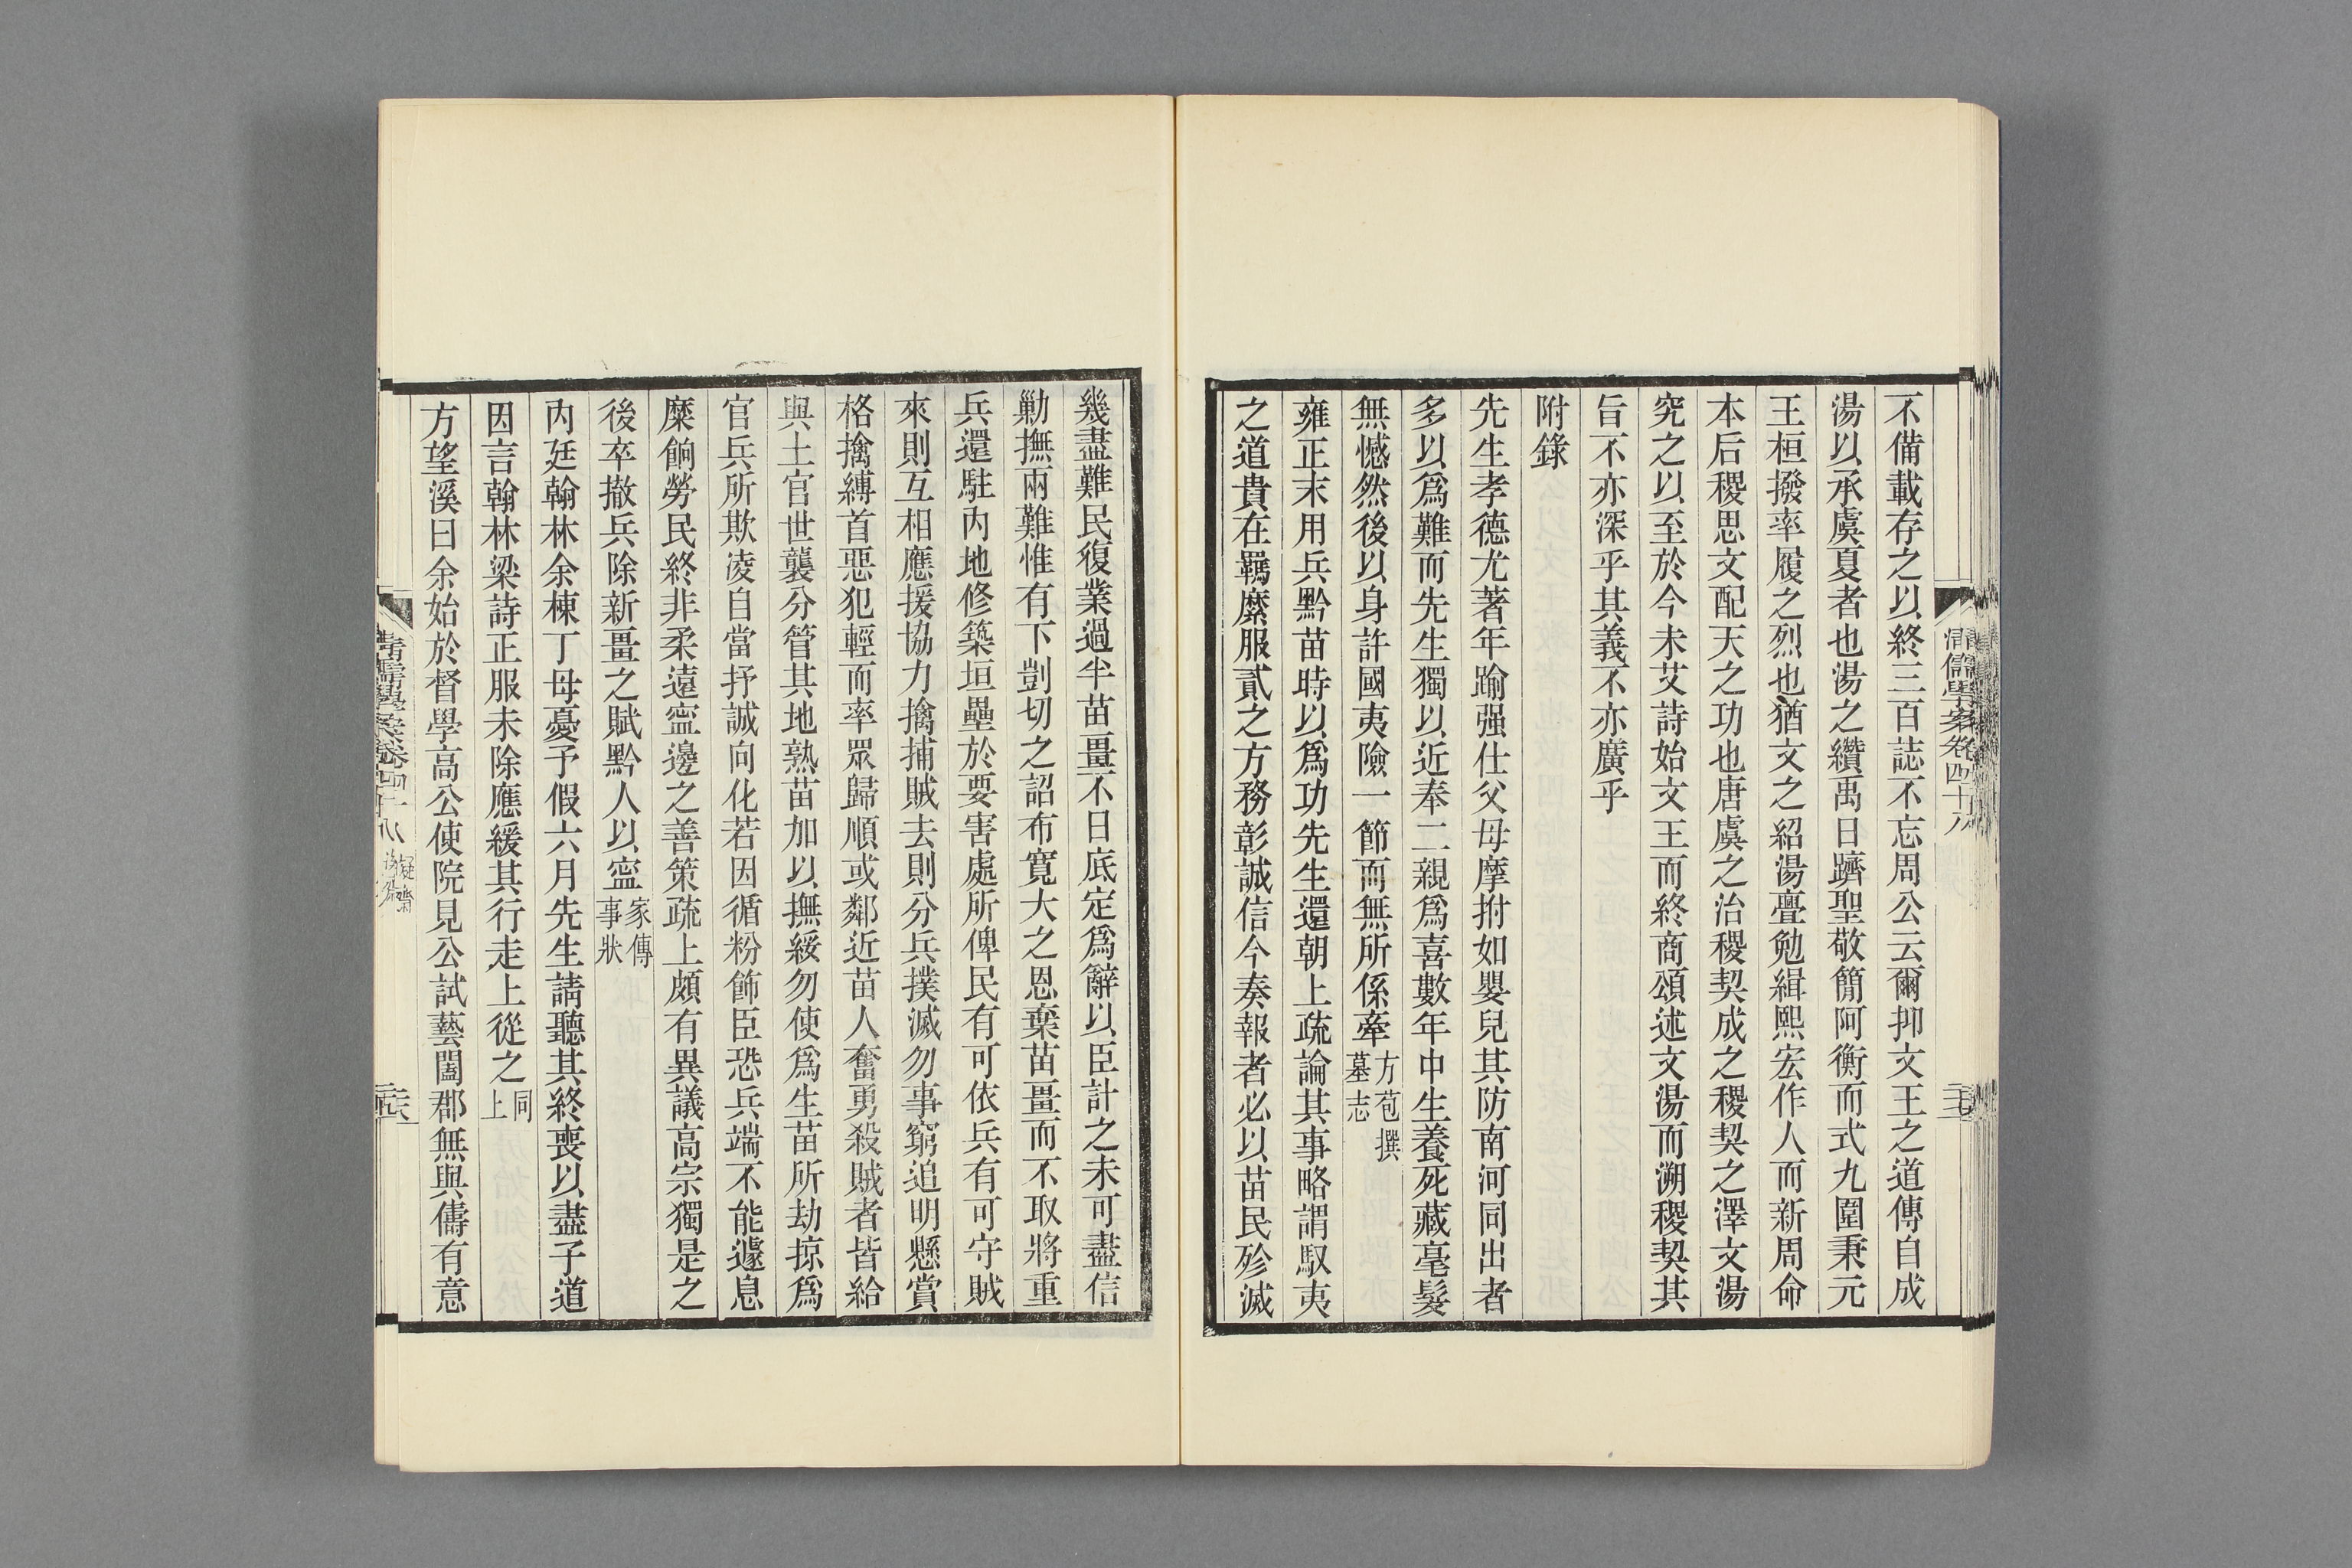 清儒學案卷四十八
不備載存之以終三百誌不忘周公云爾抑文王之道傳自成
湯以承虞夏者也湯之纘禹日躋聖敬簡阿衡而式九圍秉元
王桓撥率履之烈也猶文之紹湯亹勉緝熙宏作人而新周命
本后稷思文配天之功也唐虞之治稷契成之稷契之澤文湯
究之以至於今未艾詩始文王而終商頌述文湯而溯稷契其
旨不亦深乎其義不亦廣乎
附錄
先生孝德尤著年踰强仕父母摩拊如嬰兒其防南河同出者
多以爲難而先生獨以近奉二親爲喜數年中生養死藏毫髮
無憾然後以身許國夷險一節而無所係牽方苞撰墓志
雍正末用兵黔苗時以爲功先生還朝上疏論其事略謂馭夷
之道貴在羈縻服貳之方務彰誠信今奏報者必以苗民殄滅
幾盡難民復業過半苗畺不日底定爲辭以臣計之未可盡信
勦撫兩難惟有下剴切之詔布寬大之恩棄苗畺而不取將重
兵還駐內地修築垣壘於要害處所俾民有可依兵有可守賊
來則互相應援協力擒捕賊去則分兵撲滅勿事窮追明懸賞
格擒縛首惡犯輕而率眾歸順或鄰近苗人奮勇殺賊者皆給
與土官世襲分管其地熟苗加以撫綏勿使爲生苗所劫掠爲
官兵所欺凌自當抒誠向化若因循粉飾臣恐兵端不能遽息
糜餉勞民終非柔遠寍邊之善策疏上頗有異議高宗獨是之
後卒撤兵除新畺之賦黔人以寍家傳事狀
內廷翰林余棟丁母憂予假六月先生請聽其終喪以盡子道
因言翰林梁詩正服未除應緩其行走上從之同上
方望溪曰余始於督學高公使院見公試藝闔郡無與儔有意
清儒學案卷四十八 凝齋